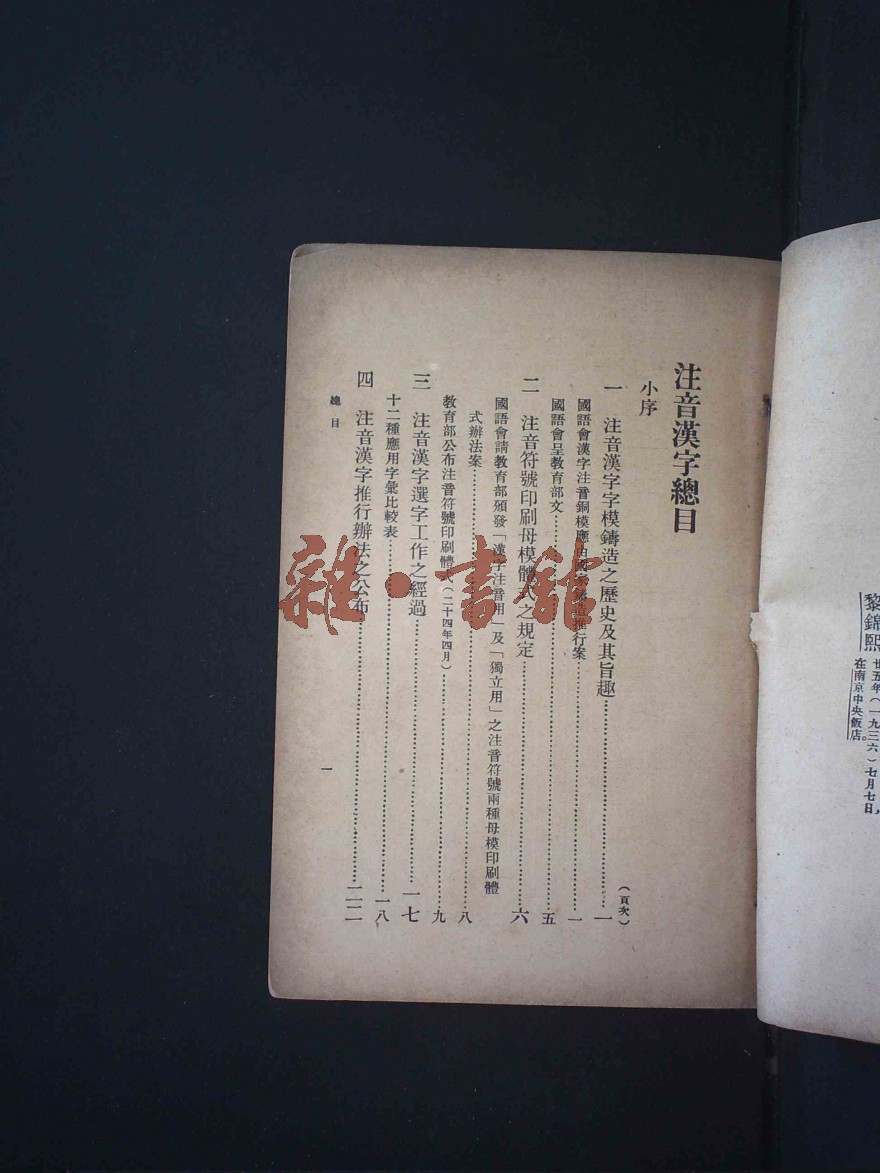 黎錦熙
廿五年(一九三六)七月七日,
在南京中央飯店。
注音漢字總目
小序
(頁次)
一 注音漢字字模鑄造之歷史及其旨趣……一
國語會漢字注音銅模應由國家鑄造推行案……一
國語會呈教育部文……五
二 注音符號印刷母模體式之規定……六
國語會請教育部頒發「漢字注音用」及「獨立用」之注音符號兩種母模印刷體
式辦法案……八
教育部公布注音符號印刷體式(二十四年四月)……九
三 注音漢字選字工作之經過……一七
十二種應用字彙比較表……一八
四 注音漢字推行辦法之公布……二二
總目
一
雜·書館